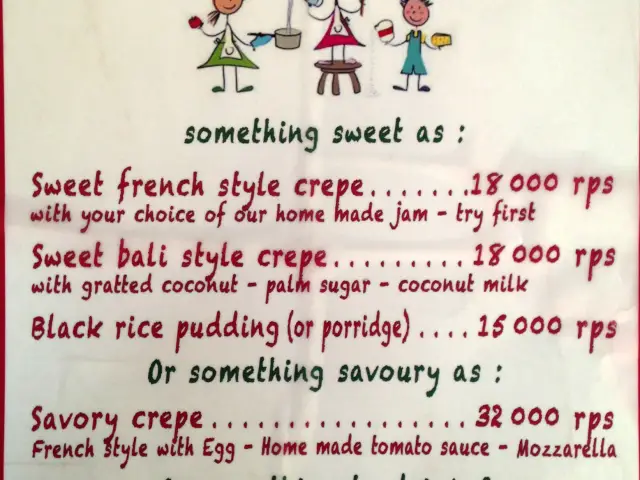 something sweet as :
Sweet french style crepe.......18 000 rps
with your choice of our home made jam - try first
Sweet bali style crepe..........18 000 rps
with gratted coconut - palm sugar - coconut milk
Black rice pudding (or porridge) .... 15 000 rps
Or something savoury as :
Savory crepe.................... 32 000 rps
French style with Egg - Home made tomato sauce - Mozzarella